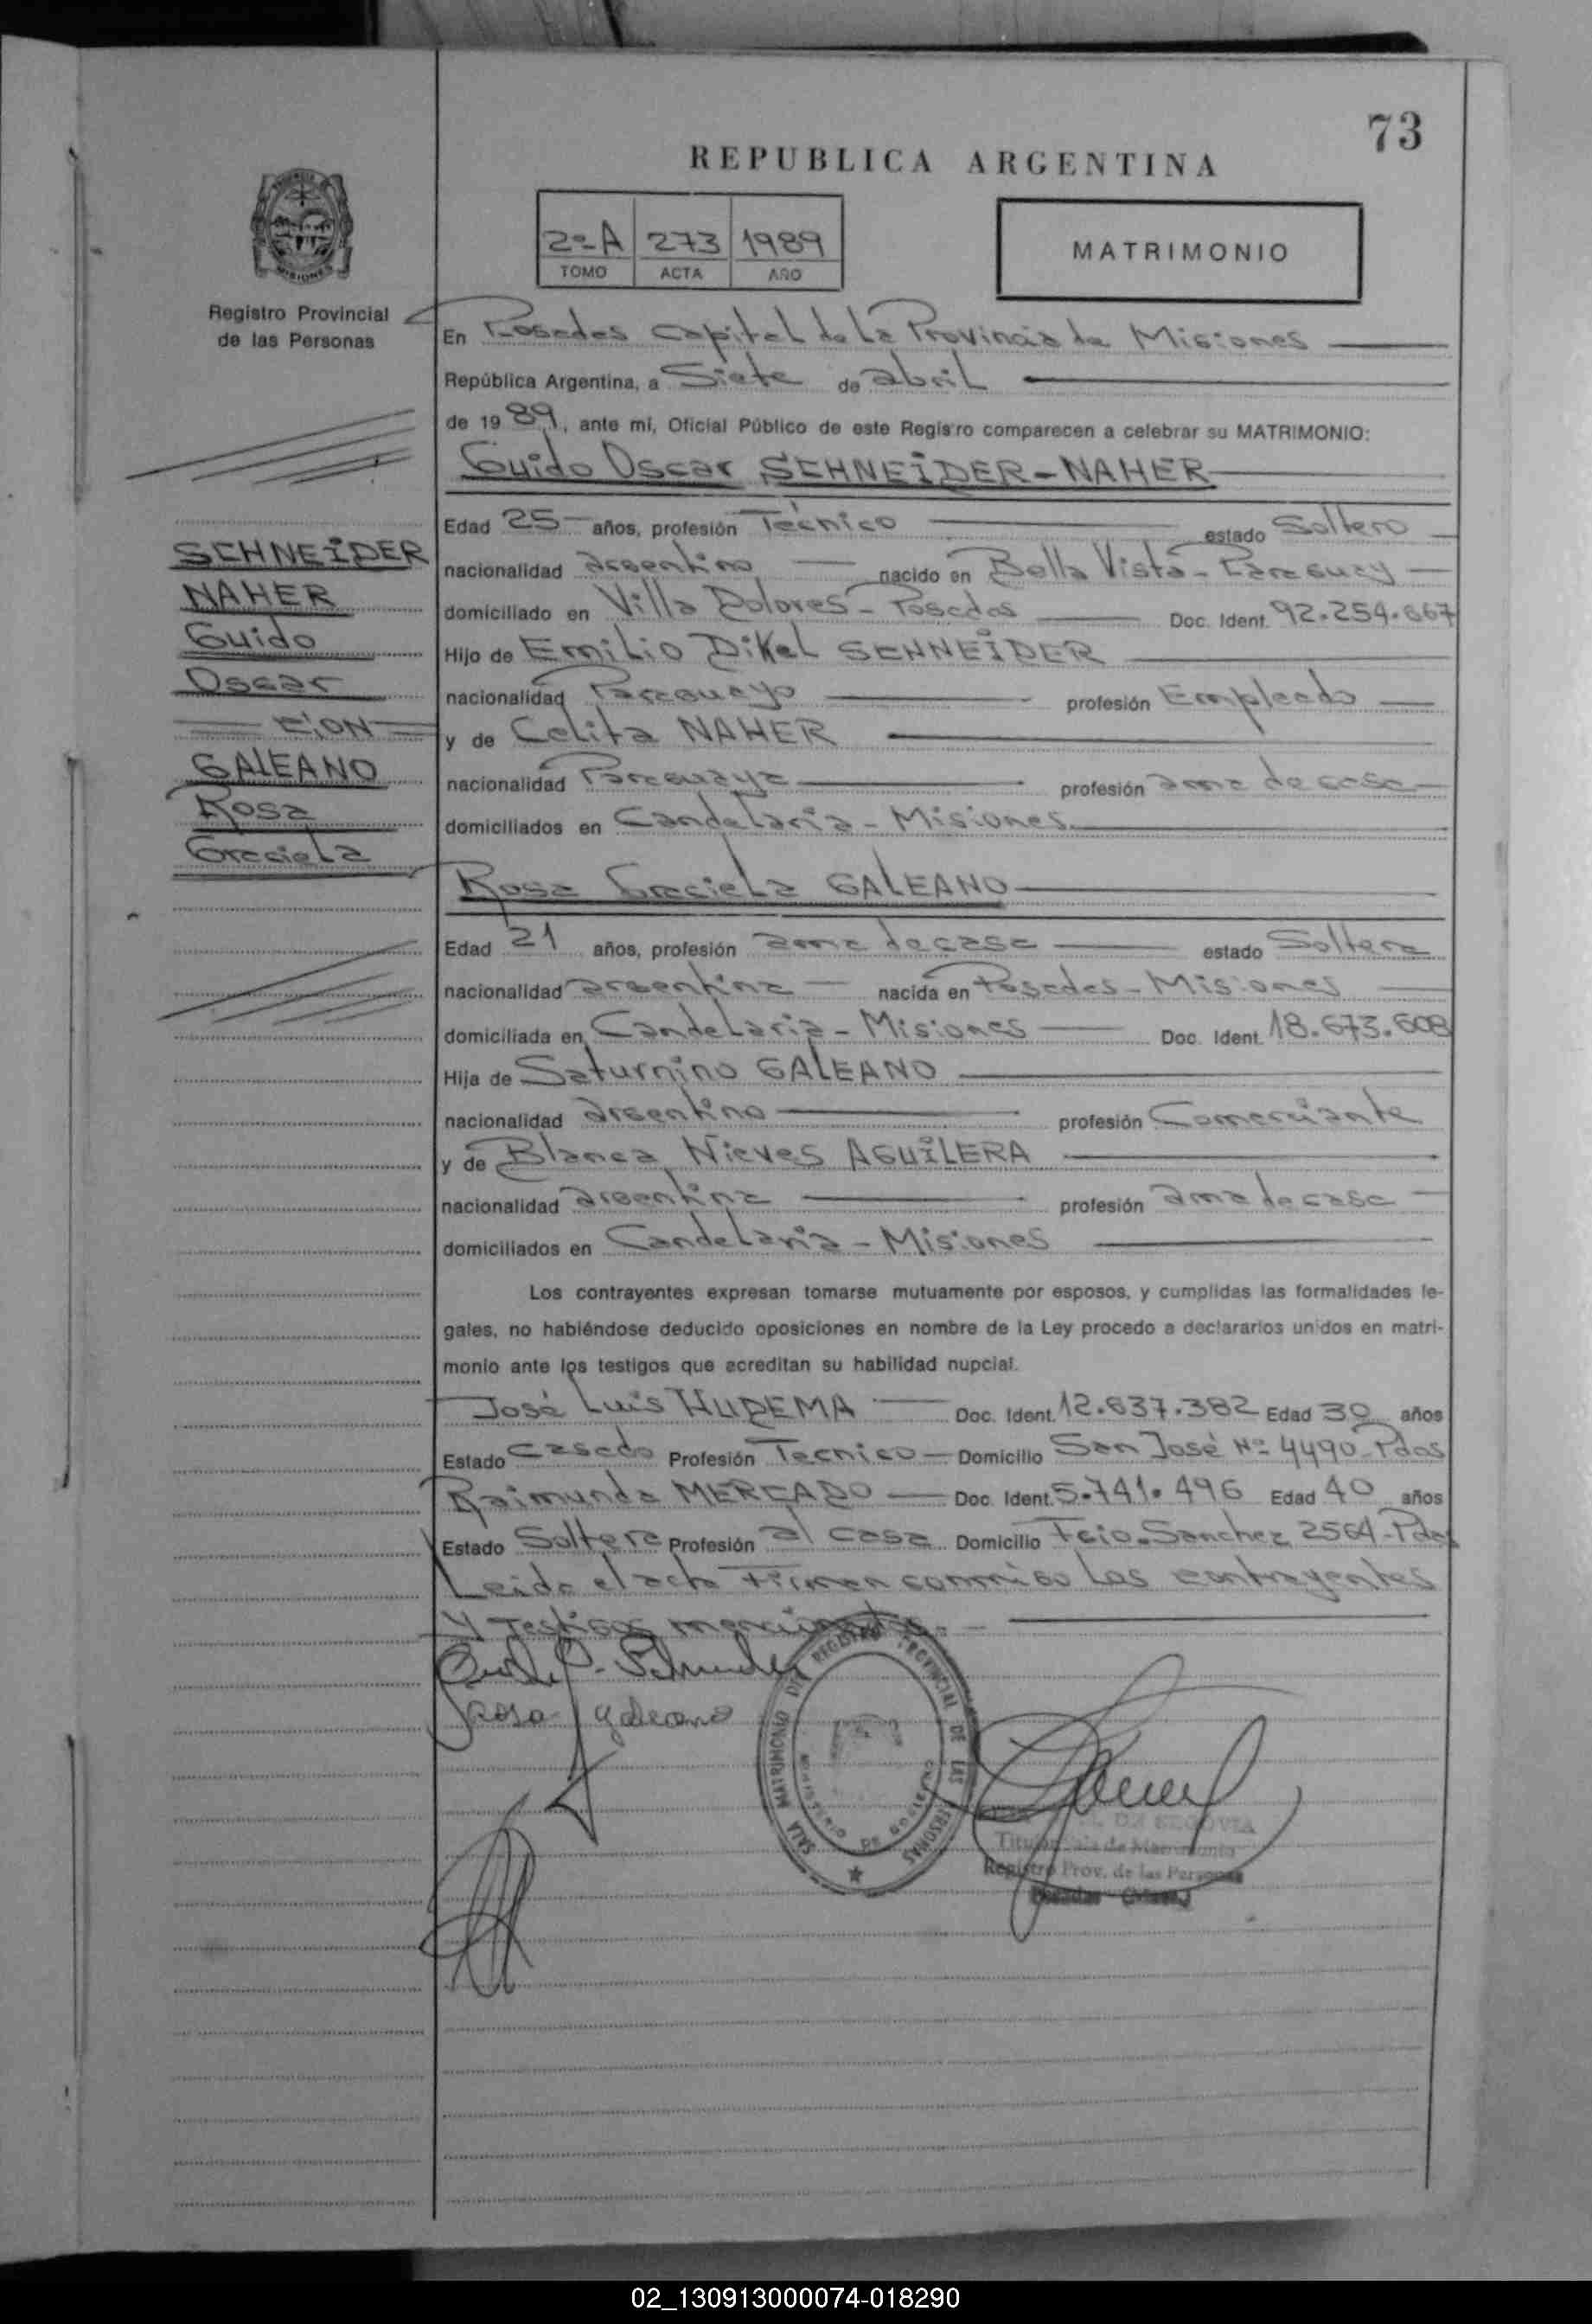 73
REPUBLICA ARGENTINA
2º A 273 1989
TOMO ACTA AÑO
MATRIMONIO
MISIONES
Registro Provincial
de las Personas
En Posadas Capital de La Provincia de Misiones
República Argentina, a Siete de abril
de 1989, ante mí, Oficial Público de este Registro comparecen a celebrar su MATRIMONIO:
Guido Oscar SCHNEIDER-NAHER
Edad 25 años, profesión Técnico estado Soltero
nacionalidad argentino nacido en Bella Vista - Paraguay
domiciliado en Villa Dolores - Posadas Doc. Ident. 92.254.667
Hijo de Emilio Dikel SCHNEIDER
nacionalidad Paraguayo profesión Empleado
y de Celita NAHER
nacionalidad Paraguaya profesión ama de casa
domiciliados en Candelaria - Misiones
SCHNEIDER
NAHER
Guido
Oscar
CON
GALEANO
Rosa
Graciela
Rosa Graciela GALEANO
Edad 21 años, profesión ama de casa estado Soltera
nacionalidad argentina nacida en Posadas - Misiones
domiciliada en Candelaria - Misiones Doc. Ident. 18.673.608
Hija de Saturnino GALEANO
nacionalidad argentino profesión Comerciante
y de Blanca Nieves AGUILERA
nacionalidad argentina profesión ama de casa
domiciliados en Candelaria - Misiones
Los contrayentes expresan tomarse mutuamente por esposos, y cumplidas las formalidades le-
gales, no habiéndose deducido oposiciones en nombre de la Ley procedo a declararlos unidos en matri-
monio ante los testigos que acreditan su habilidad nupcial.
José Luis HUPEMA Doc. Ident. 12.637.382 Edad 30 años
Estado Casado Profesión Tecnico Domicilio San José Nº 4490 - Pdas
Raimunda MERCADO Doc. Ident. 5.741.496 Edad 40 años
Estado Soltera Profesión a/ casa Domicilio Fcio. Sanchez 2564 - Pdas
Leida el acta Firman conmigo Los contrayentes
y Testigos mencionados
Rosa galeano
SALA MATRIMONIO DEL REGISTRO PROVINCIAL DE LAS PERSONAS
MINISTERIO DE GOBIERNO
DE SEGOVIA
Titular Sala de Matrimonio
Registro Prov. de las Personas
02_130913000074-018290